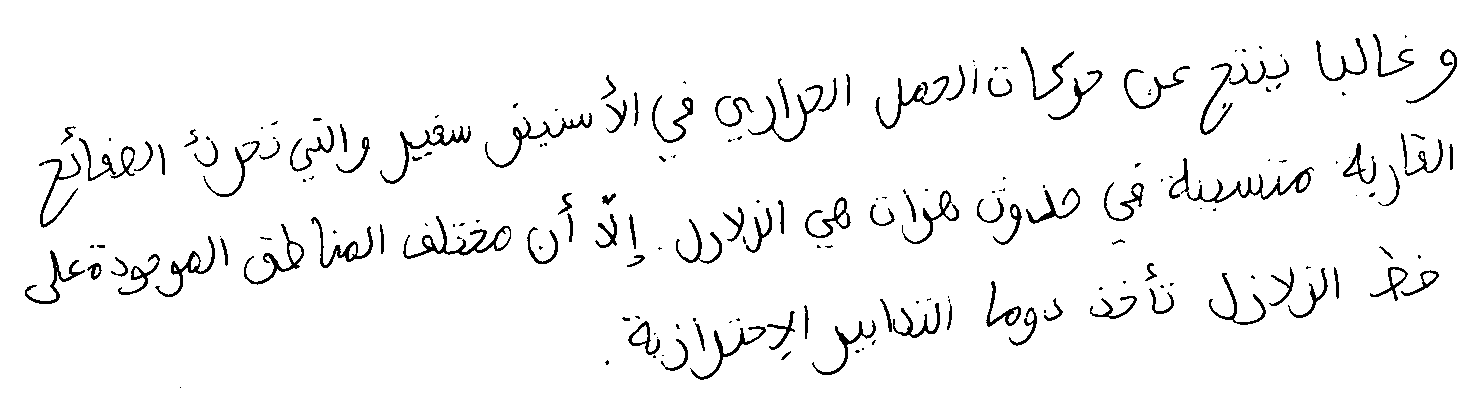 وغالبا ينتج عن حركات الحمل الحراري في الأستينو سفير والتي تحرك الصفائح
القارية متسببة في حدوث هزات هي الزلازل. إلّا أن مختلف المناطق الموجودة على
خط الزلازل تأخذ دوما التدابير الإحترازية.